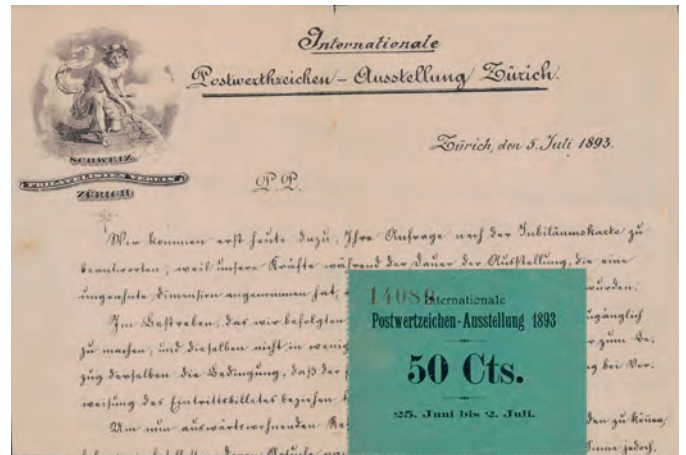 Internationale
Postwerthzeichen - Ausstellung Zürich.
Zürich, den 5. Juli 1893.
SCHWEIZ.
PHILATELISTEN VEREIN
ZÜRICH
P. P.
Wir kommen erst heute dazu, Ihre Anfrage nach der Jubiläumskarte zu
beantworten, weil unsere Kräfte während der Dauer der Ausstellung, die eine
ungeahnte Dimension angenommen hat, wurden.
Im Bestreben, das wir befolgten ugänglich
zu machen, und dieselben nicht in wenig r zum Be-
zug derselben die Bedingung, daß der g bei Vor-
weisung des Eintrittsbilletes beziehen
Um nun auswärtswohnenden den zu können,
Sinne jedoch,
14089
Internationale
Postwertzeichen-Ausstellung 1893
50 Cts.
25. Juni bis 2. Juli.